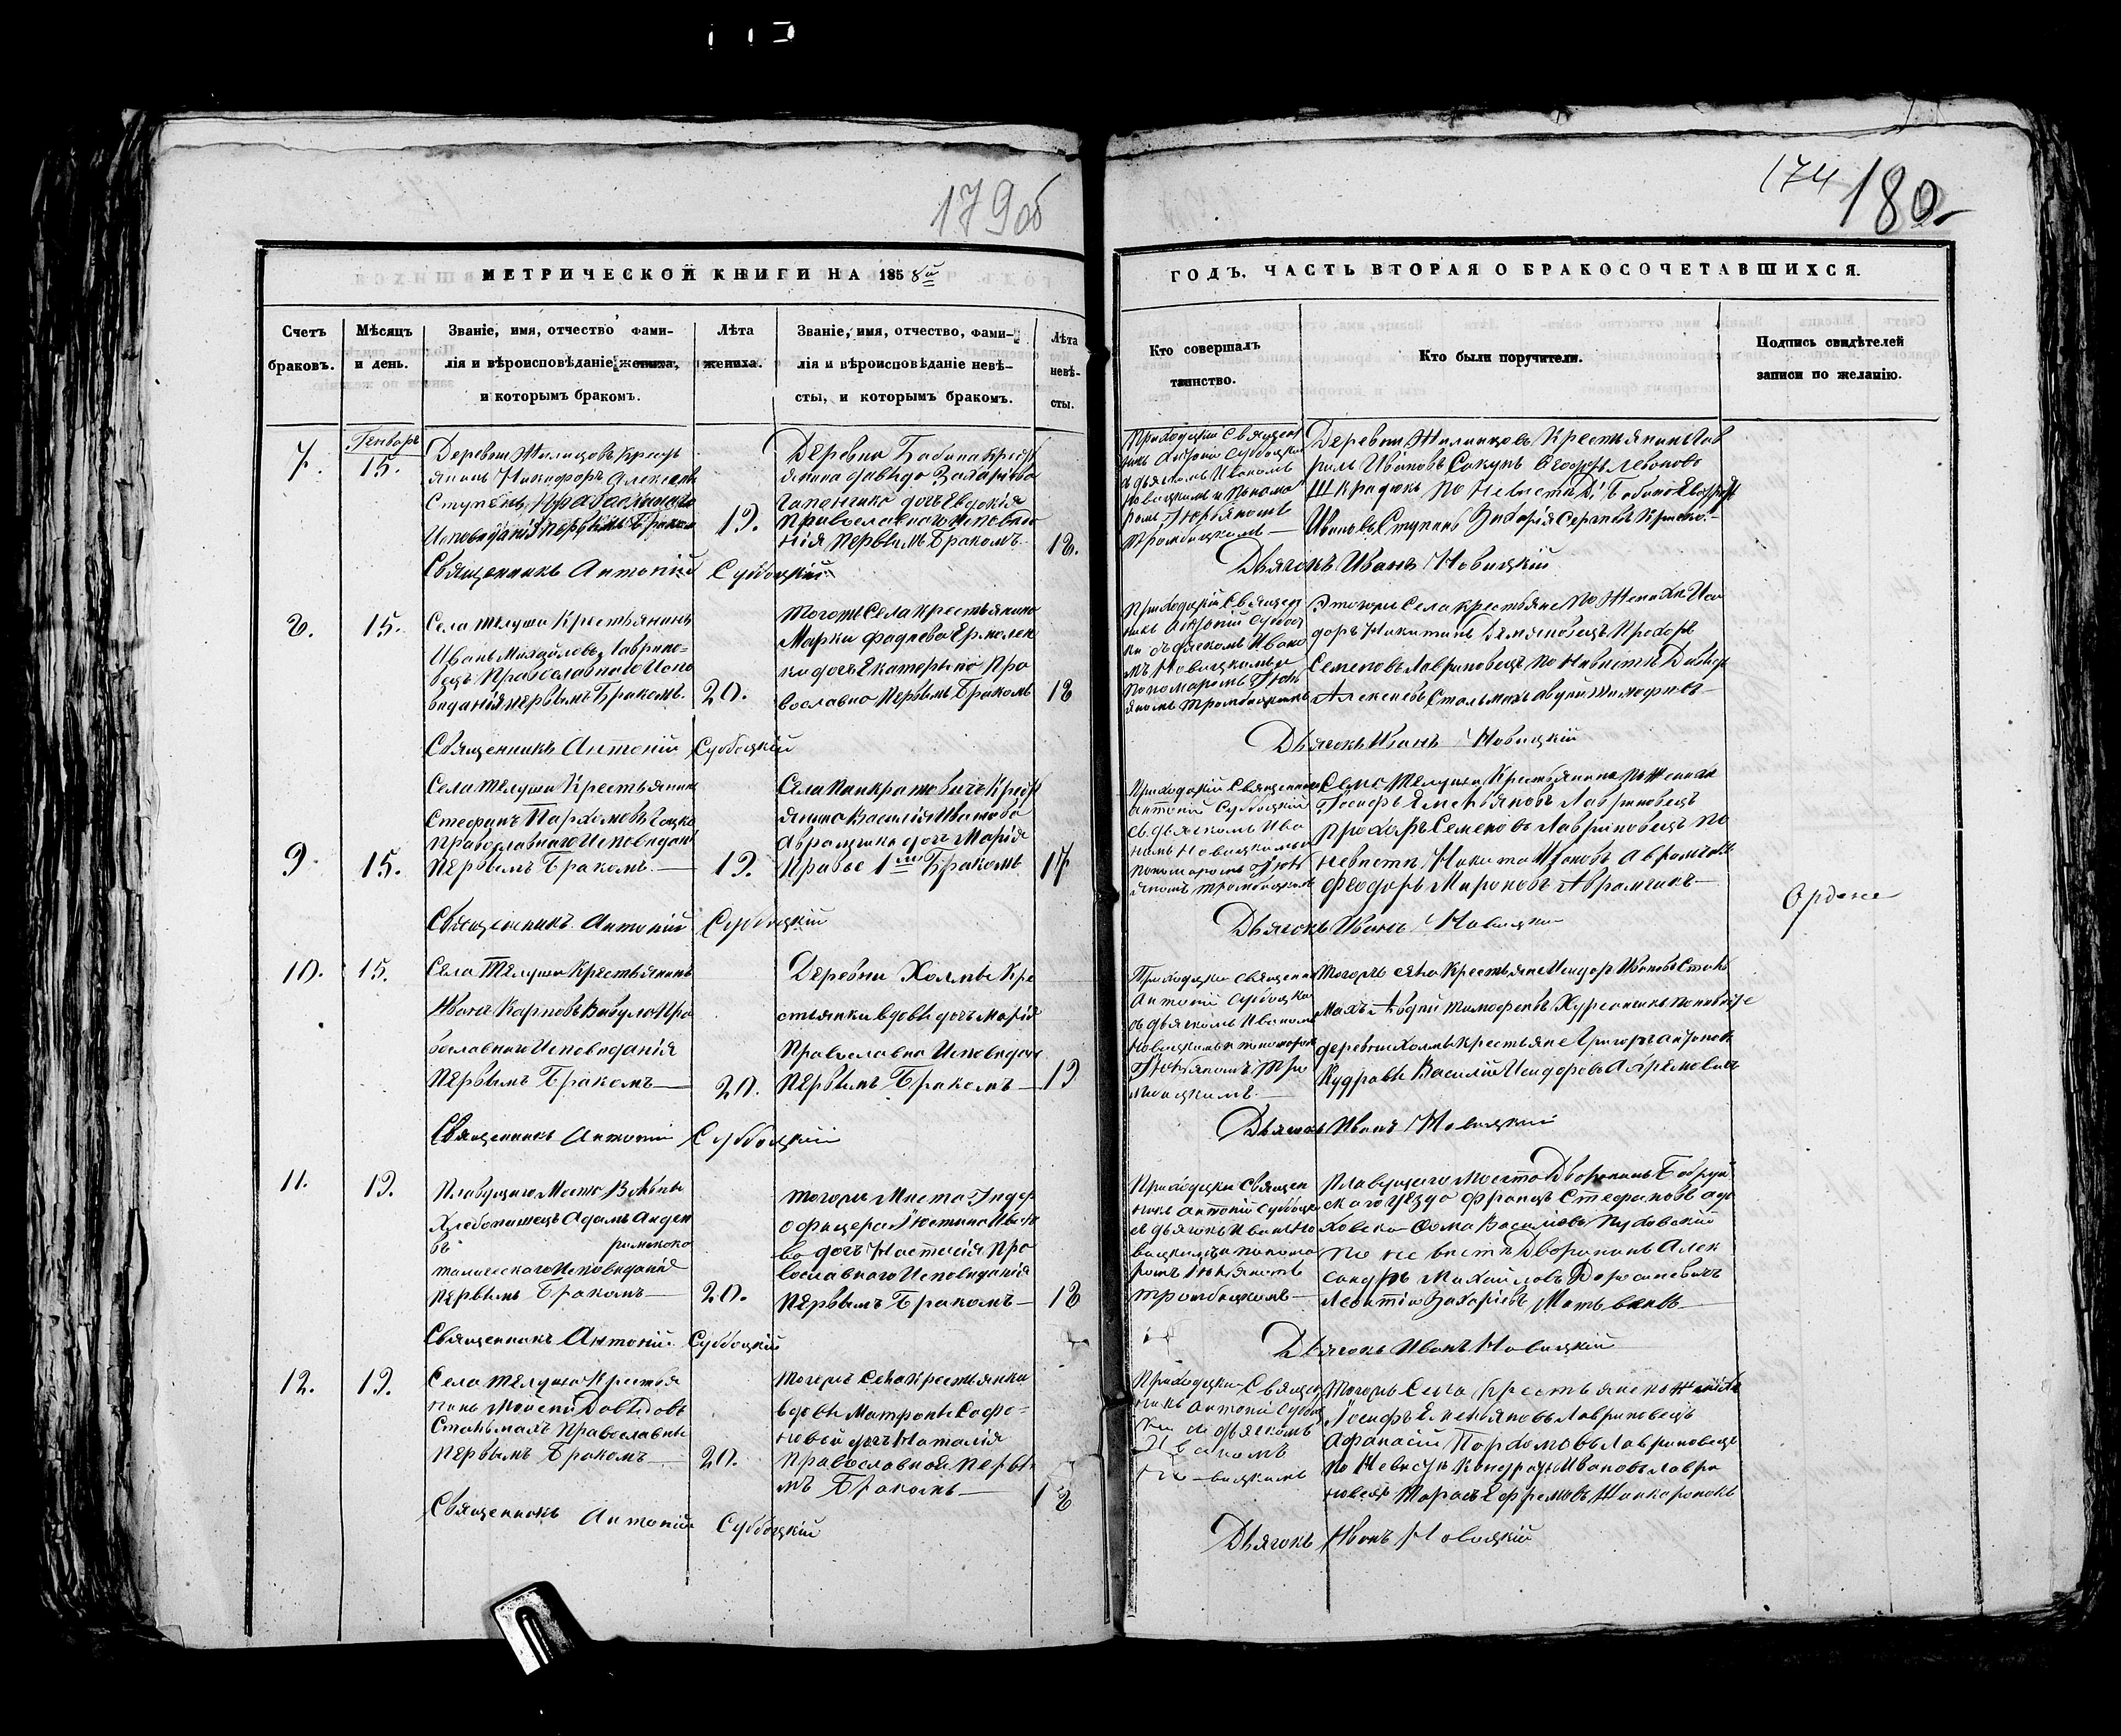 179об
174
180
МЕТРИЧЕСКОЙ КНИГИ НА 1858й
ГОДЪ, ЧАСТЬ ВТОРАЯ О БРАКОСОЧЕТАВШИХСЯ.
Счетъ
браковъ.
Мѣсяцъ
и день.
Званіе, имя, отчество фами-
лія и вѣроисповѣданіе жениха,
и которымъ бракомъ.
Лѣта
жениха.
Званіе, имя, отчество, фами-
лія и вѣроисповѣданіе невѣ-
сты, и которымъ бракомъ.
Лѣта
невѣ-
сты.
Кто совершалъ
таинство.
Кто были поручители.
Подпись свидѣтелей
записи по желанію.
7.
Генваръ
15.
Деревни Жилицовъ Крест
янинъ Никифоръ Алексѣевъ
Ступень Православнаго
Исповѣданія первымъ Бракомъ
19.
Деревни Бабина Крест
янина Давыда Захарьева
Гапоненко дочь Евдокія
Православнаго Исповѣда
нія первымъ Бракомъ
18.
Приходскій Священ
никъ Антоній Суббоцкій
съ дьячкомъ Иваномъ
Новицкимъ и Понома
ремъ
Деревни Жилицовъ Крестьянинъ Гав
рилъ Ивановъ Сакунъ Феодоръ Левоновъ
Шкрадюкъ по Невѣсти Д. Бабина
Ивановъ Ступень Захарія Сергѣевъ
Священникъ Антоній Суббоцкій
Дьячокъ Иванъ Новицкій
8.
15.
Села Телуши Крестьянинъ
Иванъ Михайловъ Лаврино-
вецъ Православнаго Испо
веданія первымъ Бракомъ.
20.
Тогожъ Села Крестьянина
Марки Фадѣева Ермолен
ки дочь Екатерына Пра
вославна Первымъ Бракомъ
18
Приходскій Священ
никъ Антоній Суббоц
кій съ дьячкомъ Ивано
мъ Новицкимъ и
пономаромъ
Этогожъ Села крестьяне по Женихи Иси
доръ Никитинъ Прохоръ
Семеновъ Лавриновецъ по Невѣсти Давыд
Алексѣевъ Стальмахъ Авдей Тимофѣевъ
Священникъ Антоній Суббоцкій
Дьячокъ Иванъ Новицкій
9.
15.
Села Телуши Крестьянинъ
Стефанъ Пархомовъ
Православнаго Исповѣданія
Первымъ Бракомъ.
19.
Села Панкратовичъ Крест
янина Василія Иванова
Аврамчика дочь Марія
Правос 1мъ Бракомъ
17
Приходскій Священникъ
Антоній Суббоцкій
съ дьячкомъ Ива
номъ Новицкимъ и
пономаромъ
Села Телуши Крестьянина по Жениха
Іосифъ Емельяновъ Лавриновецъ
Прохоръ Семеновъ Лавриновецъ по
невѣсти Никита Ивановъ Аврамчикъ
Феодоръ Мироновъ Аврамчикъ
Священникъ Антоній Суббоцкій
Дьячокъ Иванъ Новицкій
10.
15.
Села Телуши Крестьянинъ
Иванъ Карповъ Вавуло Пра
вославнаго Исповѣданія
Первымъ Бракомъ
20.
Деревни Холмы Кре
стьянки вдовы дочь Марія
Православна Исповѣдан
Первымъ Бракомъ
19
Приходскій Священни
Антоній Суббоцкій
съ дьячкомъ Иваномъ
Новицкимъ и пономаромъ
Тогожъ села Крестьяне Исидоръ Ивановъ Сталь
махъ Авдей Тимофеевъ
деревни Холмы Крестьяне Григоръ Антоновъ
Кудравы Василій Исидоровъ
Священникъ Антоній Суббоцкій
Дьячокъ Иванъ Новицкій
11.
19.
Плавущаго Моста Вольны
Хлебопашецъ Адамъ Анден
въ римскока
толическаго Исповѣданія
первымъ Бракомъ
20.
Тогожъ Моста Ундер
офицера Юстина Ивано
ва дочь Настасія Пра
вославнаго Исповѣданія
Первымъ Бракомъ
18
Приходскій Священ
никъ Антоній Суббоцкій
съ дьячкомъ Иваномъ Но
вицкимъ и понома
ромъ
Плавущаго Моста Дворянинъ Бобруй
скаго уѣзда Францъ Стефановъ Адо
ховскій Фома Василіевъ
по невѣсти Дворянинъ Алек
сандръ Михайловъ
Леонтій Захаріевъ
Священникъ Антоній Суббоцкій
Дьячокъ Иванъ Новицкій
12.
19.
Села Телуши Крестья
нинъ Моисей Давыдовъ
Стальмахъ Православны
Первымъ Бракомъ
20.
Тогожъ Села Крестьянки
вдовы Матроны Сафо-
новой дочь Наталія
Православной первы
мъ Бракомъ
18
Приходскій Священ
никъ Антоній Суббоц
кій съ дьячкомъ
Иваномъ
Новицкимъ
Тогожъ Села Крестьяне по Жениха
Іосифъ Емельяновъ Лавриновецъ
Афанасій Пархомовъ Лавриновецъ
по Невѣсти Кондратъ Ивановъ Лаври
новецъ Тарасъ Ефремовъ
Священникъ Антоній Суббоцкій
Дьячокъ Иванъ Новицкій